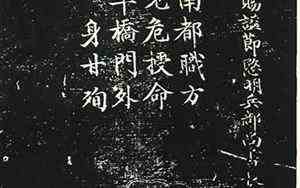 賜諡節愍明兵部尚書
南都職方
見危授命
橋門外
身甘殉